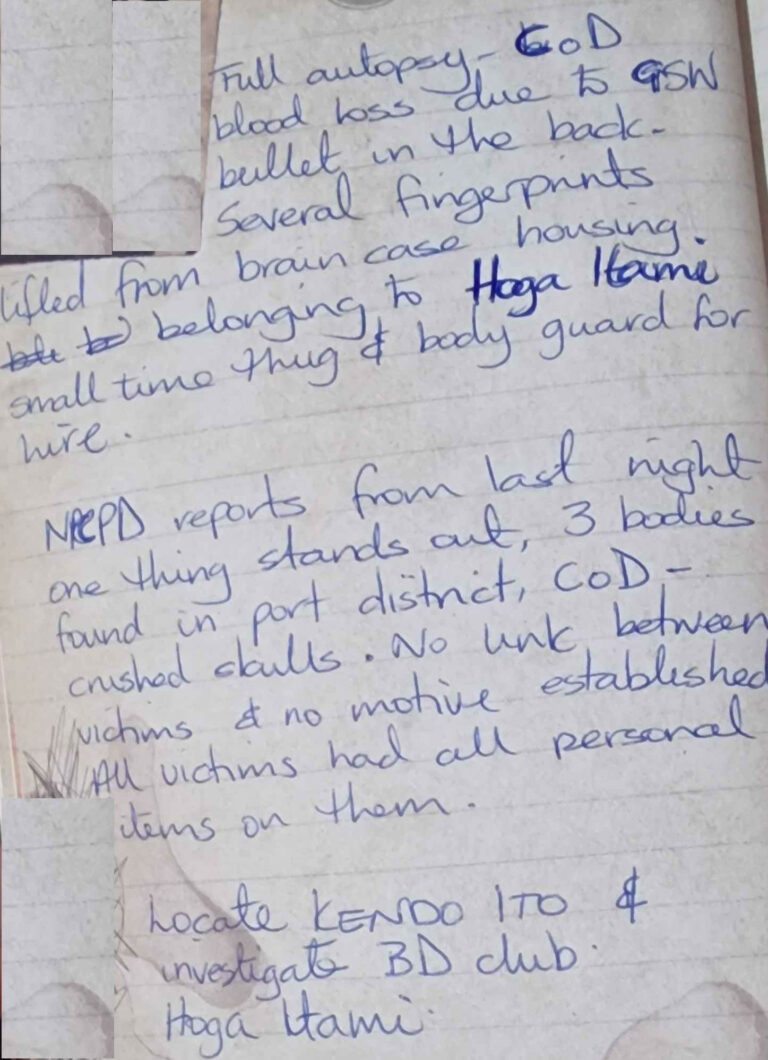 Full autopsy - CoD
blood loss due to GSW
bullet in the back.
Several fingerprints
lifted from brain case housing.
belonging to Hoga Itami
small time thug & body guard for
hire.
NRCPD reports from last night
one thing stands out, 3 bodies
found in port district, CoD -
crushed skulls. No link between
victims & no motive established
All victims had all personal
items on them.
Locate KENDO ITO &
investigate BD club.
Hoga Itami.